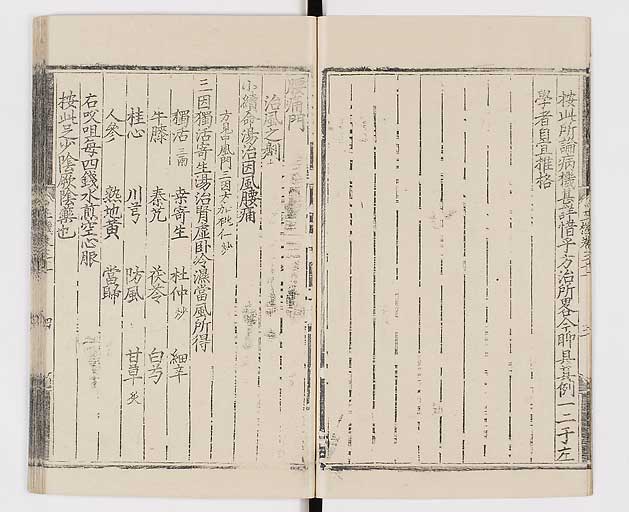 按此所論病機甚詳惜乎方治所畧今聊具其例一二于左
學者自宜推格
腰痛門
治風之劑
小續命湯治因風腰痛
方見風門三因方加桃仁炒
三因獨活寄生湯治腎虛臥冷濕當風所得
獨活三兩 桑寄生 杜仲炒 細辛
牛膝 秦艽 茯苓 白芍
桂心 川芎 防風 甘草炙
人參 熟地黃 當歸
右㕮咀每四錢水煎空心服
按此足少陰厥陰藥也